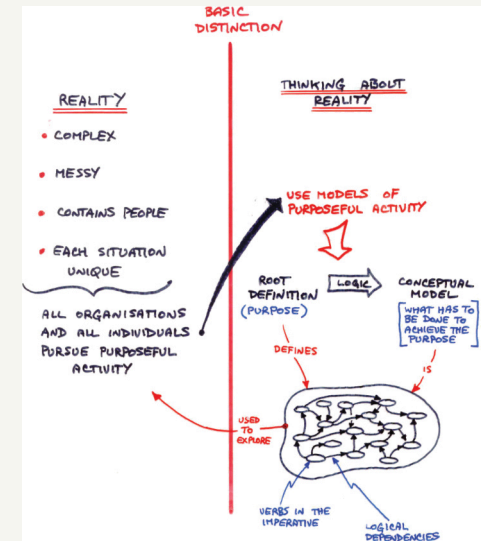 BASIC
DISTINCTION
REALITY
• COMPLEX
• MESSY
• CONTAINS PEOPLE
• EACH SITUATION
UNIQUE
ALL ORGANISATIONS
AND ALL INDIVIDUALS
PURSUE PURPOSEFUL
ACTIVITY
THINKING ABOUT
REALITY
USE MODELS OF
PURPOSEFUL ACTIVITY
ROOT
DEFINITION
(PURPOSE)
LOGIC
CONCEPTUAL
MODEL
[WHAT HAS TO
BE DONE TO
ACHIEVE THE
PURPOSE]
DEFINES
IS
USED
TO
EXPLORE
VERBS IN THE
IMPERATIVE
LOGICAL
DEPENDENCIES